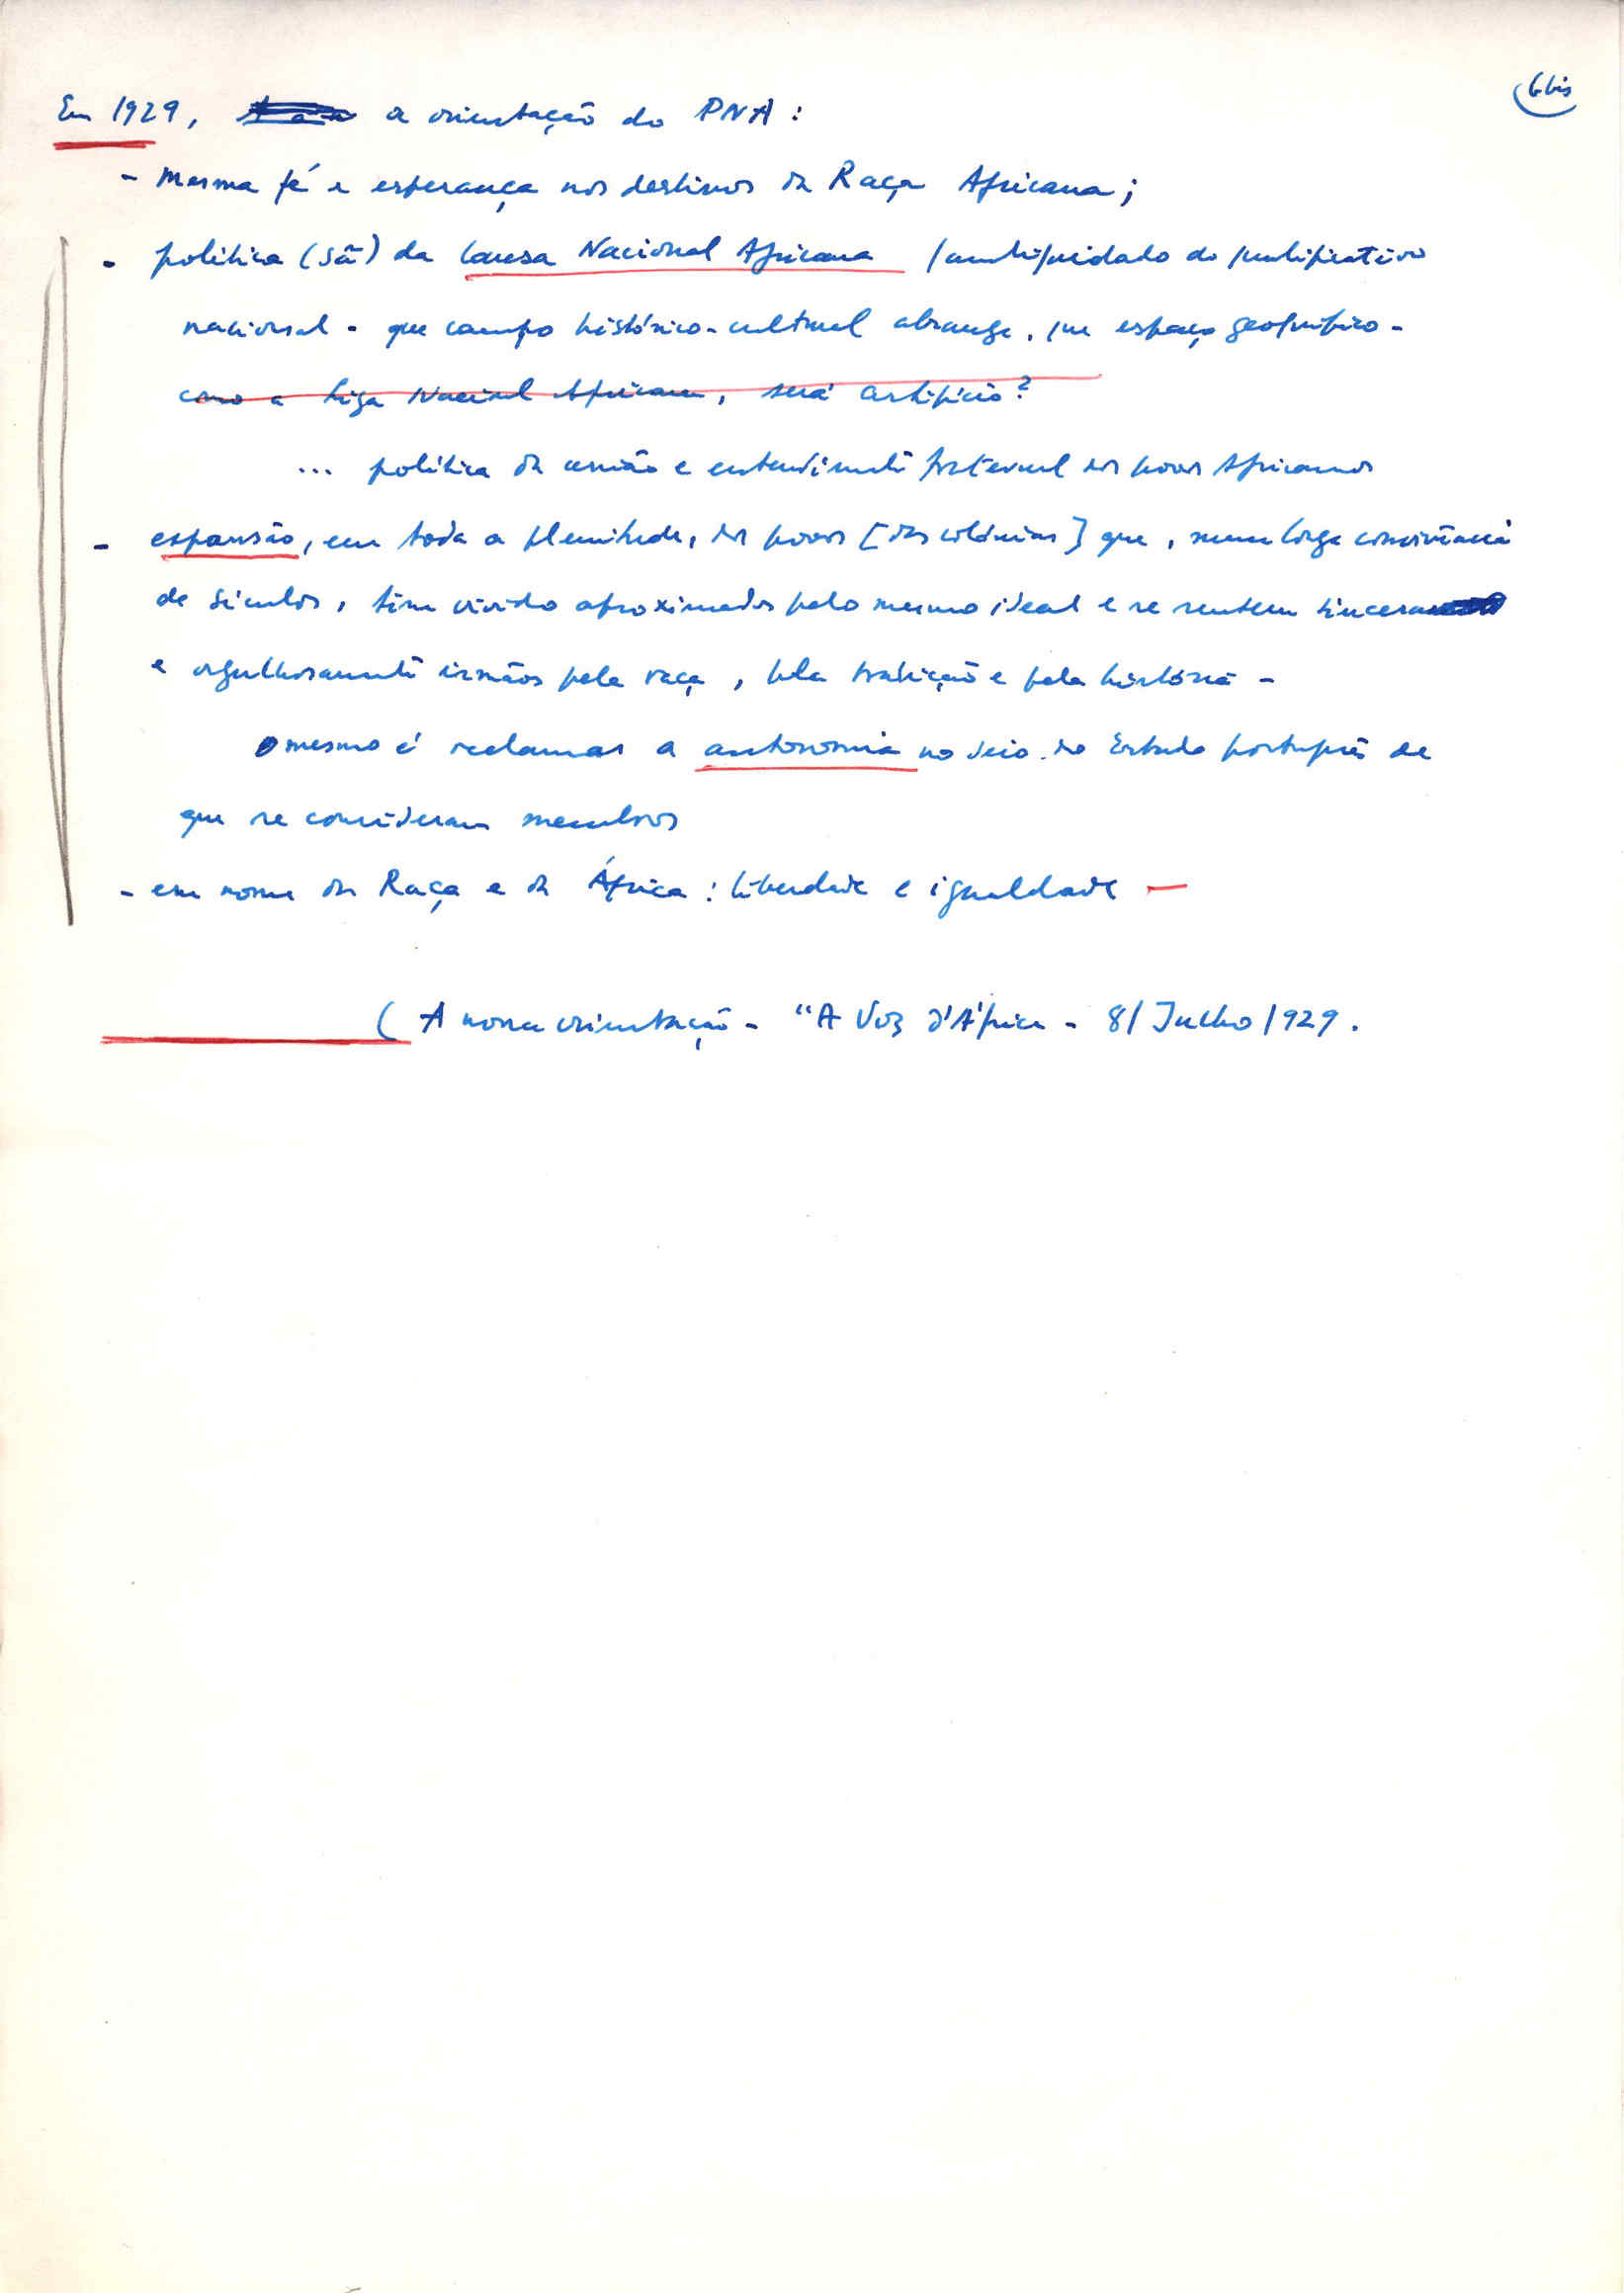 6 bis
Em 1929, a orientação do PNA :
- mesma fé e esperança nos destinos da Raça Africana ;
- política (sã) da Causa Nacional Africana / ambiguidade do qualificativo
nacional - que campo histórico-cultural abrange, que espaço geográfico -
como a Liga Nacional Africana, será artifício ?
... política da união e entendimento fraternal dos povos Africanos
- espansão, em toda a plenitude, dos povos [das colónias] que, numa longa convivência
de séculos, têm vivido aproximados pelo mesmo ideal e se sentem sincera
e orgulhosamente irmãos pela raça, pela tradição e pela história -
O mesmo é reclamar a autonomia no seio do Estado português de
que se consideram membros
- em nome da Raça e da África : liberdade e igualdade -
( A nossa orientação - "A Voz d'África - 8/ Julho /929 .